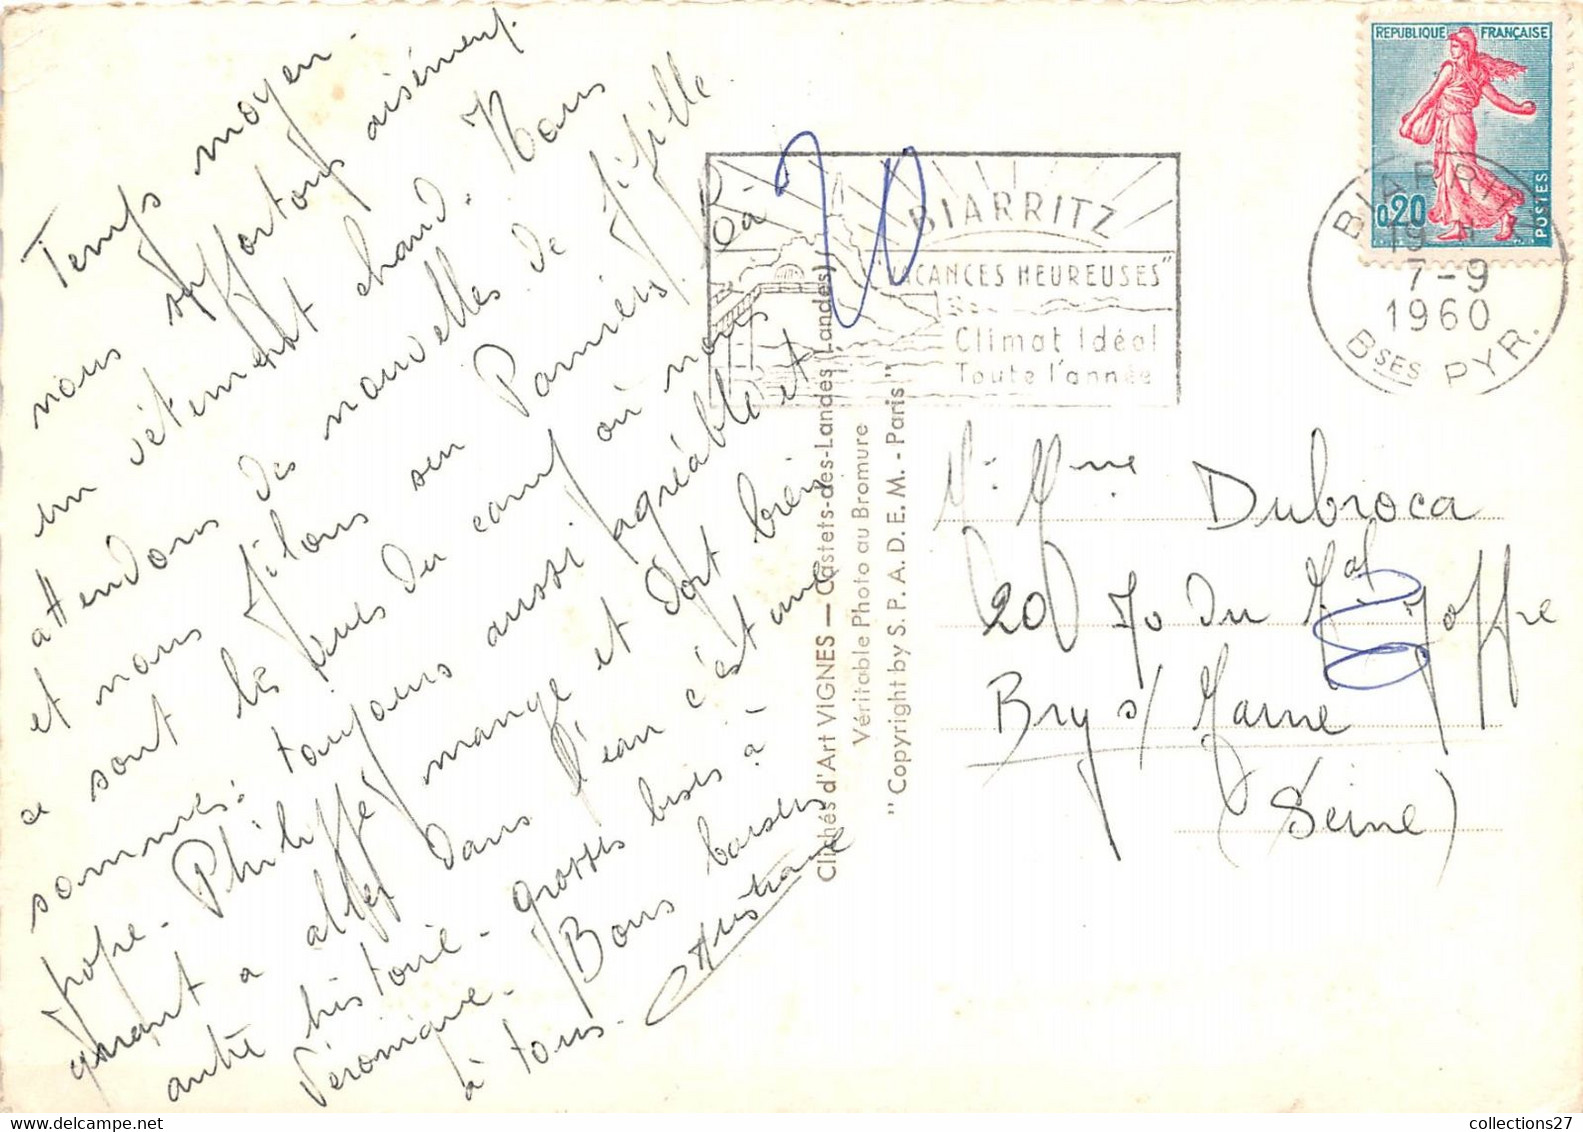 Temps moyen -
nous supportons aisément
un vêtement chaud. Nous
attendons des nouvelles de Fifille
et nous filons sur Pamiers. Là
ce sont les rues du camp où nous
sommes. toujours aussi agréable et
propre - Philippe mange et dort bien
quant à aller dans l'eau c'est une
autre histoire - grosses bises à
Véronique - Bons baisers
à tous -
Christiane
REPUBLIQUE FRANÇAISE
0,20
POSTES
BIARRITZ
19 H
7-9
1960
BSES PYR.
BIARRITZ
"VACANCES HEUREUSES"
Climat Idéal
Toute l'année
Clichés d'Art VIGNES — Castets-des-Landes (Landes)
Véritable Photo au Bromure
"Copyright by S.P.A.D.E.M. - Paris"
M. Mme Dubroca
20 du Mal Joffre
Bry s/ Marne
(Seine)
collections27